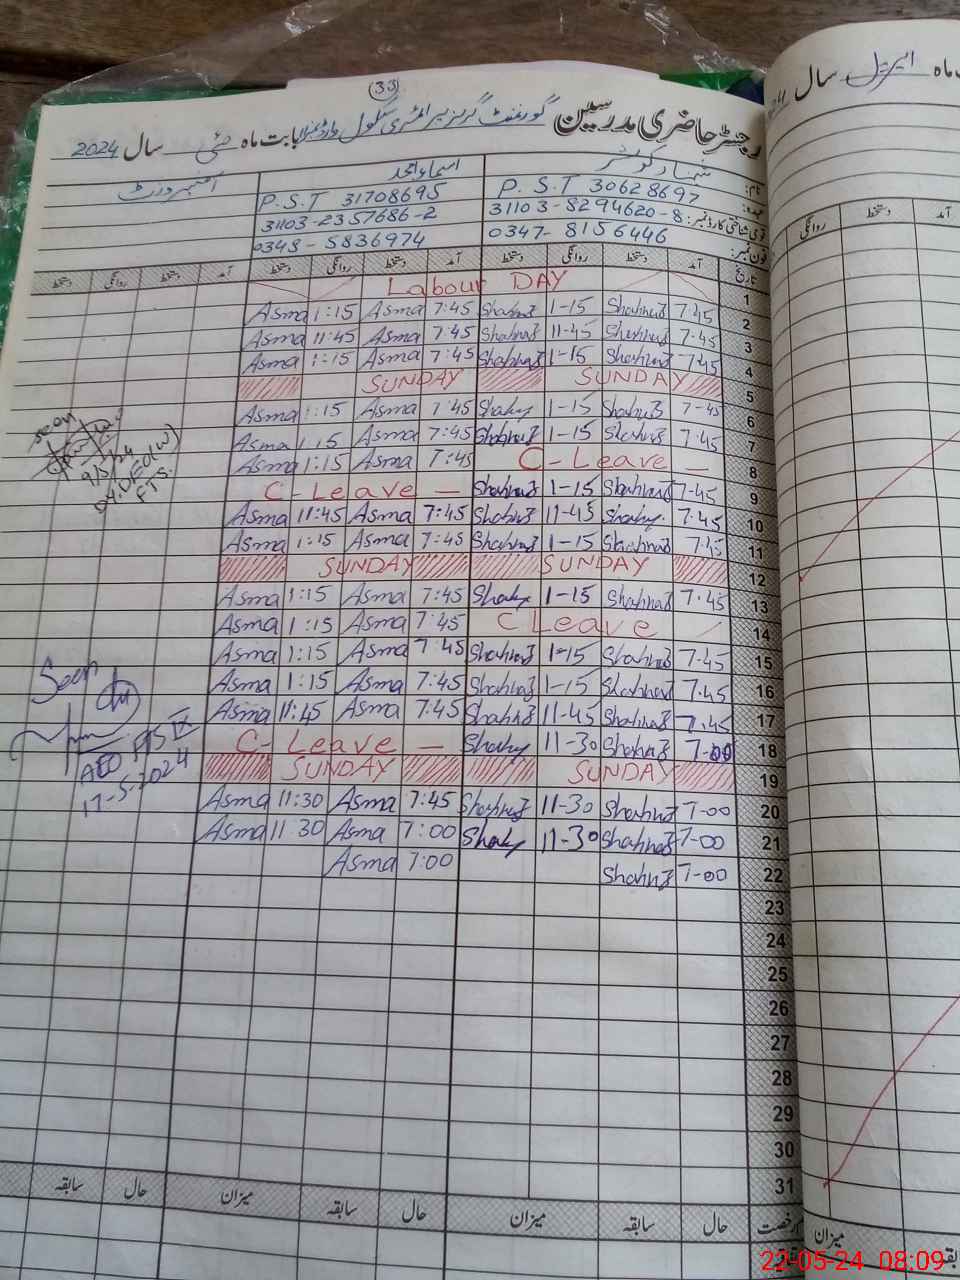 33
رجسٹر حاضری مدرسین گورنمنٹ گرلز پرائمری سکول بابت ماہ مئی سال 2024
نام: شہناز کوثر اسماء امجد
عہدہ: P.S.T 30628697 P.S.T 31708695
قومی شناختی کارڈ نمبر: 31103-8294620-8 31103-2357686-2
فون نمبر: 0347-8156446 0348-5836974
تاریخ آمد دستخط روانگی دستخط آمد دستخط روانگی دستخط آمد دستخط روانگی دستخط
1 Labour DAY
2 7.45 Shahnaz 1-15 Shahnaz 7:45 Asma 1:15 Asma
3 7.45 Shahnaz 11-45 Shahnaz 7:45 Asma 11:45 Asma
4 7.45 Shahnaz 1-15 Shahnaz 7:45 Asma 1:15 Asma
5 SUNDAY SUNDAY
6 7-45 Shahnaz 1-15 7:45 Asma 1:15 Asma
7 7.45 Shahnaz 1-15 Shahnaz 7:45 Asma 1:15 Asma
8 C-Leave – 7:45 Asma 1:15 Asma
9 7-45 Shahnaz 1-15 Shahnaz C-Leave –
10 7.45 11-45 Shahnaz 7:45 Asma 11:45 Asma
11 7.45 Shahnaz 1-15 Shahnaz 7:45 Asma 1:15 Asma
12 SUNDAY SUNDAY
13 7.45 Shahnaz 1-15 7:45 Asma 1:15 Asma
14 C Leave 7:45 Asma 1:15 Asma
15 7.45 Shahnaz 1-15 Shahnaz 7:45 Asma 1:15 Asma
16 7.45 Shahnaz 1-15 Shahnaz 7:45 Asma 1:15 Asma
17 7.45 Shahnaz 11-45 Shahnaz 7:45 Asma 11:45 Asma
18 7-00 Shahnaz 11-30 C-Leave –
19 SUNDAY SUNDAY
20 7-00 Shahnaz 11-30 Shahnaz 7:45 Asma 11:30 Asma
21 7-00 Shahnaz 11-30 7:00 Asma 11 30 Asma
22 7-00 Shahnaz 7:00 Asma
23
24
25
26
27
28
29
30
31
رخصت حال سابقہ میزان حال سابقہ میزان حال سابقہ
Seen
9/5/24
DY.DEO(W)
FTS.
Seen
AEO FTS IX
17-5-2024
ماہ اپریل سال
آمد دستخط روانگی
میزان
22-05-24 08:09